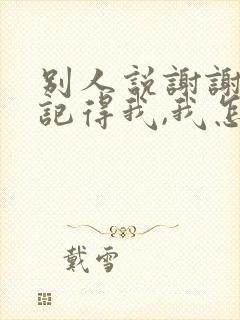 别人説謝謝
記得我,我怎
戴雪